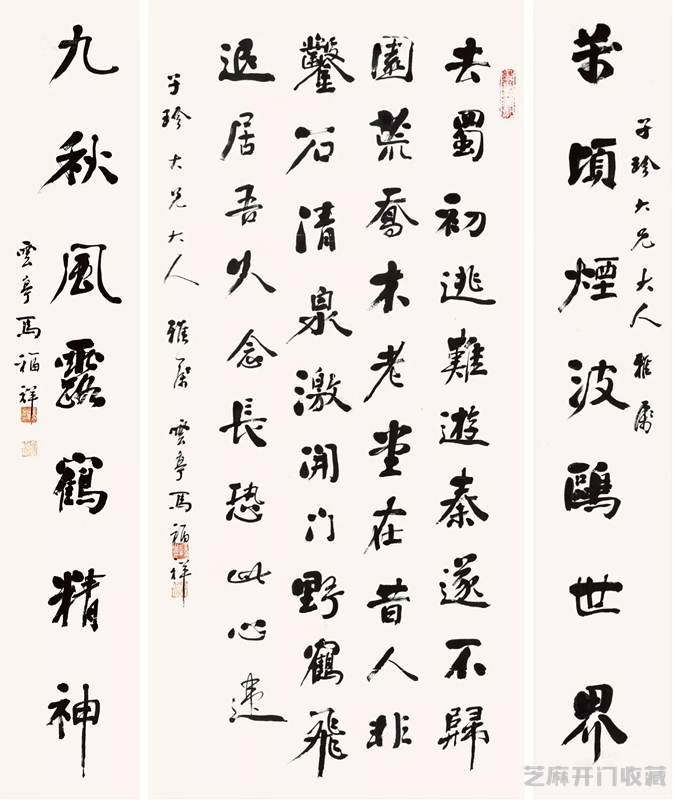 子珍大兄大人雅屬
萬頃煙波鷗世界
去蜀初逃難遊秦遂不歸
園荒喬木老堂在昔人非
鑿石清泉激開門野鶴飛
退居吾久念長恐此心違
子珍大兄大人雅屬雲亭馬福祥
九秋風露鶴精神
雲亭馬福祥
芝麻开门收藏